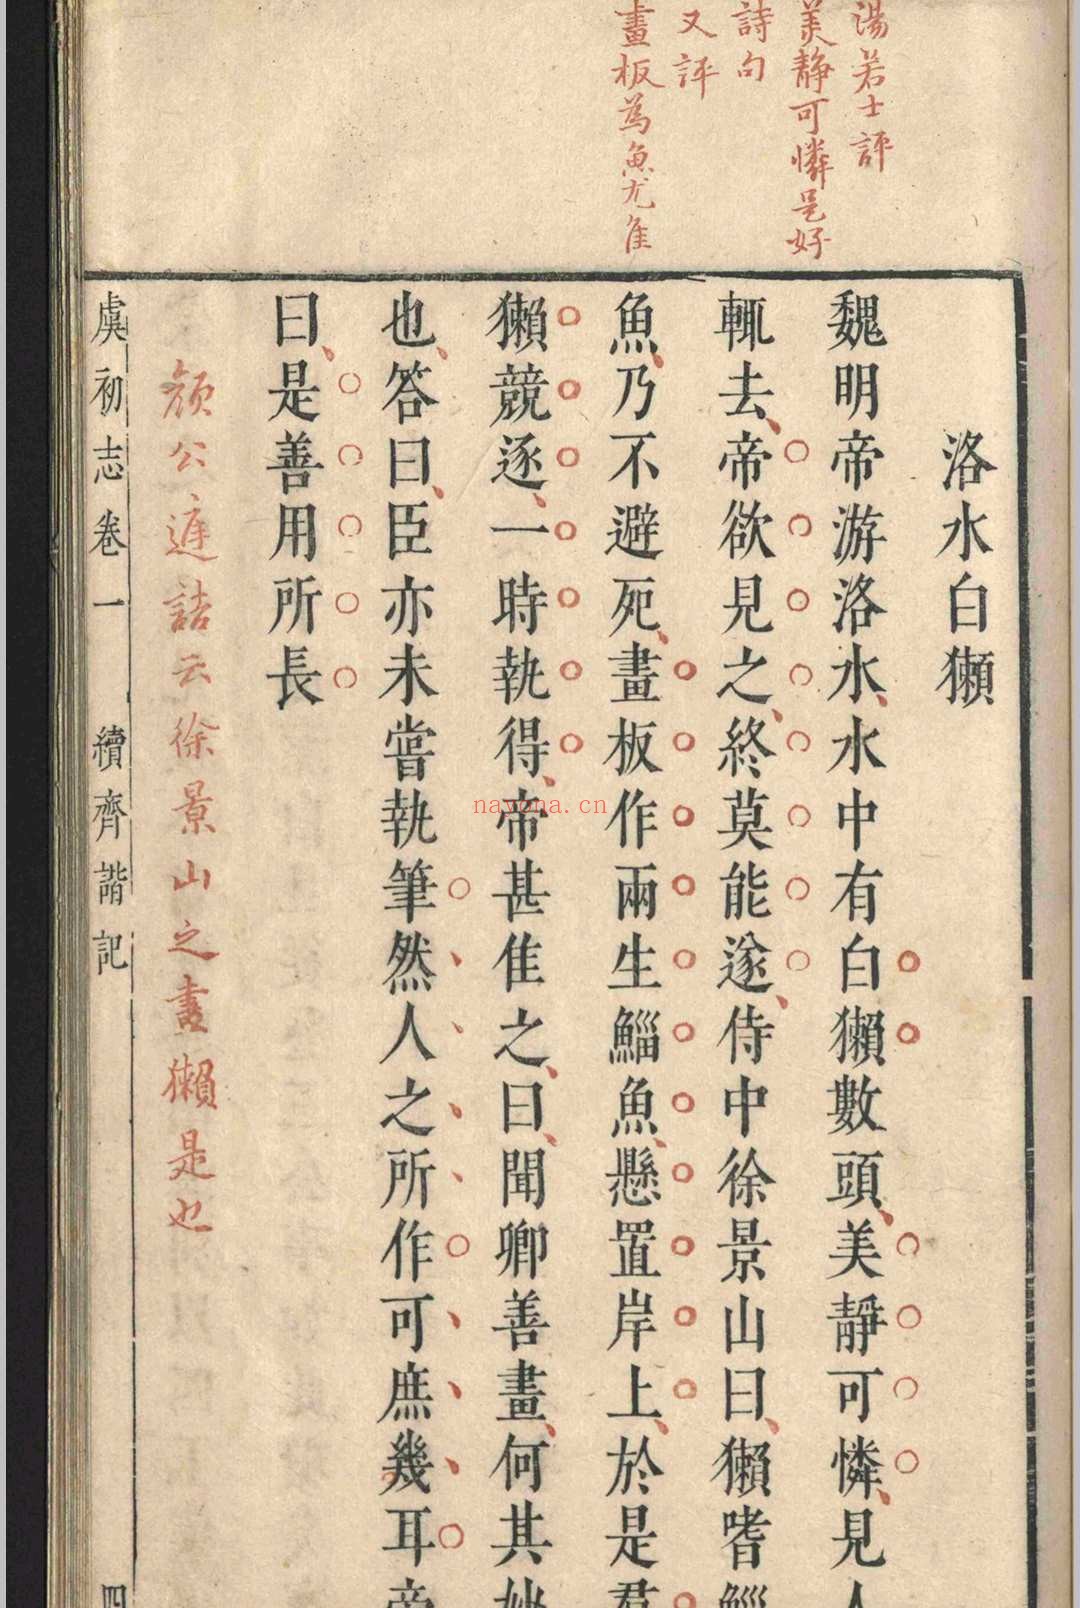 湯若士評
美静可憐是好
詩句
又評
畫板為魚尤佳
洛水白獺
魏明帝游洛水水中有白獺數頭美靜可憐見人
輒去帝欲見之終莫能遂侍中徐景山曰獺嗜鯔
魚乃不避死畫板作兩生鯔魚懸置岸上於是羣
獺競逐一時執得帝甚佳之曰聞卿善畫何其妙
也答曰臣亦未嘗執筆然人之所作可庶幾耳帝
曰是善用所長
顔公遮詰云徐景山之畫獺是也
虞初志卷一 續齊諧記 四
nayona.cn